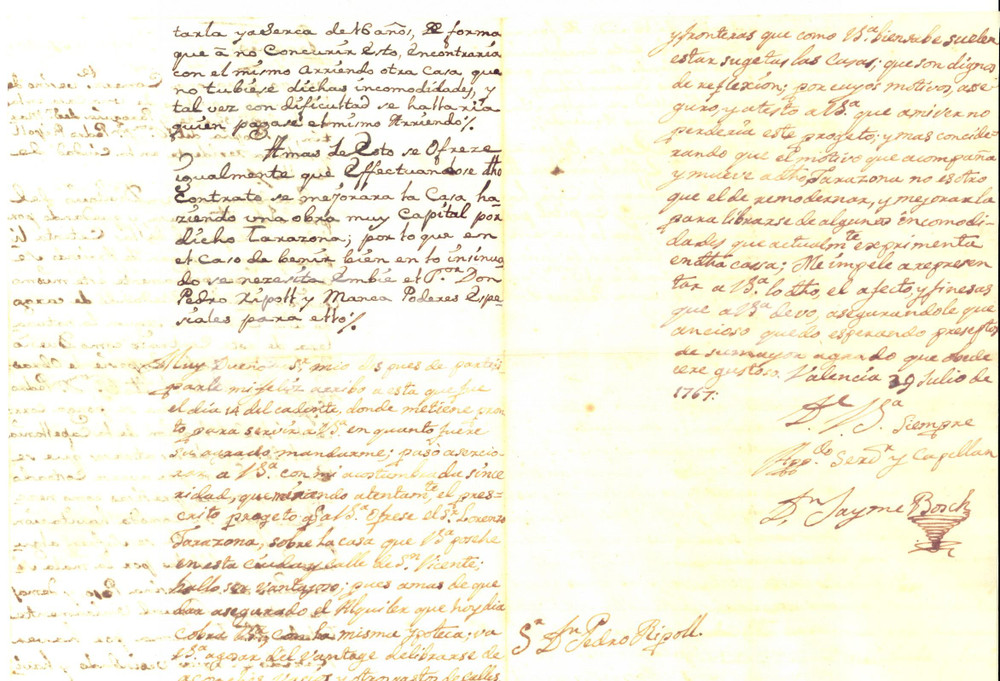 tarla ya serca de 16 años, De forma
que â no Concurir Esto, encontraria
con el mismo Arriendo otra Casa, que
no tubiése dichas incomodidades, y
tal vez con dificultad se hallaria
quien pagase el mismo Arriendo%
Amas de Esto se Ofrece
igualmente que Effectuandose dho
Contrato se mejorara la Casa ha-
ziendo una obra muy Capital por
dicho Tarazona; por lo que en
el Caso de benir bien en lo insinua-
do se neresita Embie el Sor. Don
Pedro Ripoll y Manca Poderes Espe-
siales para ello%
Muy Dueño y Sr. mio despues de partisi
parle mi feliz arribo a esta que fue
el dia 14 del cadente, donde me tiene pron
to para servir a VSa. en quanto fuere
su agrado mandarme; paso a sercio-
rar a VSa. con mi acustumbrada since
ridad, que mirando atentamte. el pres-
crito progeto qe. a VSa. Ofrese el Sr. Lorenzo
Tarazona, sobre la casa que VSa. poshe
en esta Ciudad y calle de Sn. Vicente;
hallo ser vantajoso; pues amas de que
dar asegurado el Alquiler que hoy dia
cobra VSa. con la misma ypoteca; va
VSa. a gosar del vantage de librarse de
y otros gastos de calles
y fronteras que como VSa. bien sabe suelen
estar sugetas las Casas; que son dignos
de reflexion; por cuyos motivos, ase-
guro, y atesto a VSa. que a mi ver no
perderia este progeto; y mas concide-
rando que el motivo que acompaña
y mueve a dho Tarazona no es otro
que el de remodernar, y mejorar la
para librarse de algunas incomodi-
dades que actualmte. exprimenta
en dha cassa; Me impele a represen-
tar a VSa. lo dho, el afecto, y finesas
que a VSa. devo, asegurandole que
ancioso quedo esperando preseptos
de su mayor agrado que obede
cere gustoso. Valencia 29 Julio de
1767.
De VSa.
Siempre
Serdr. y Capellan
Dn. Jayme Bosck
Sr. Dn. Pedro Ripoll.